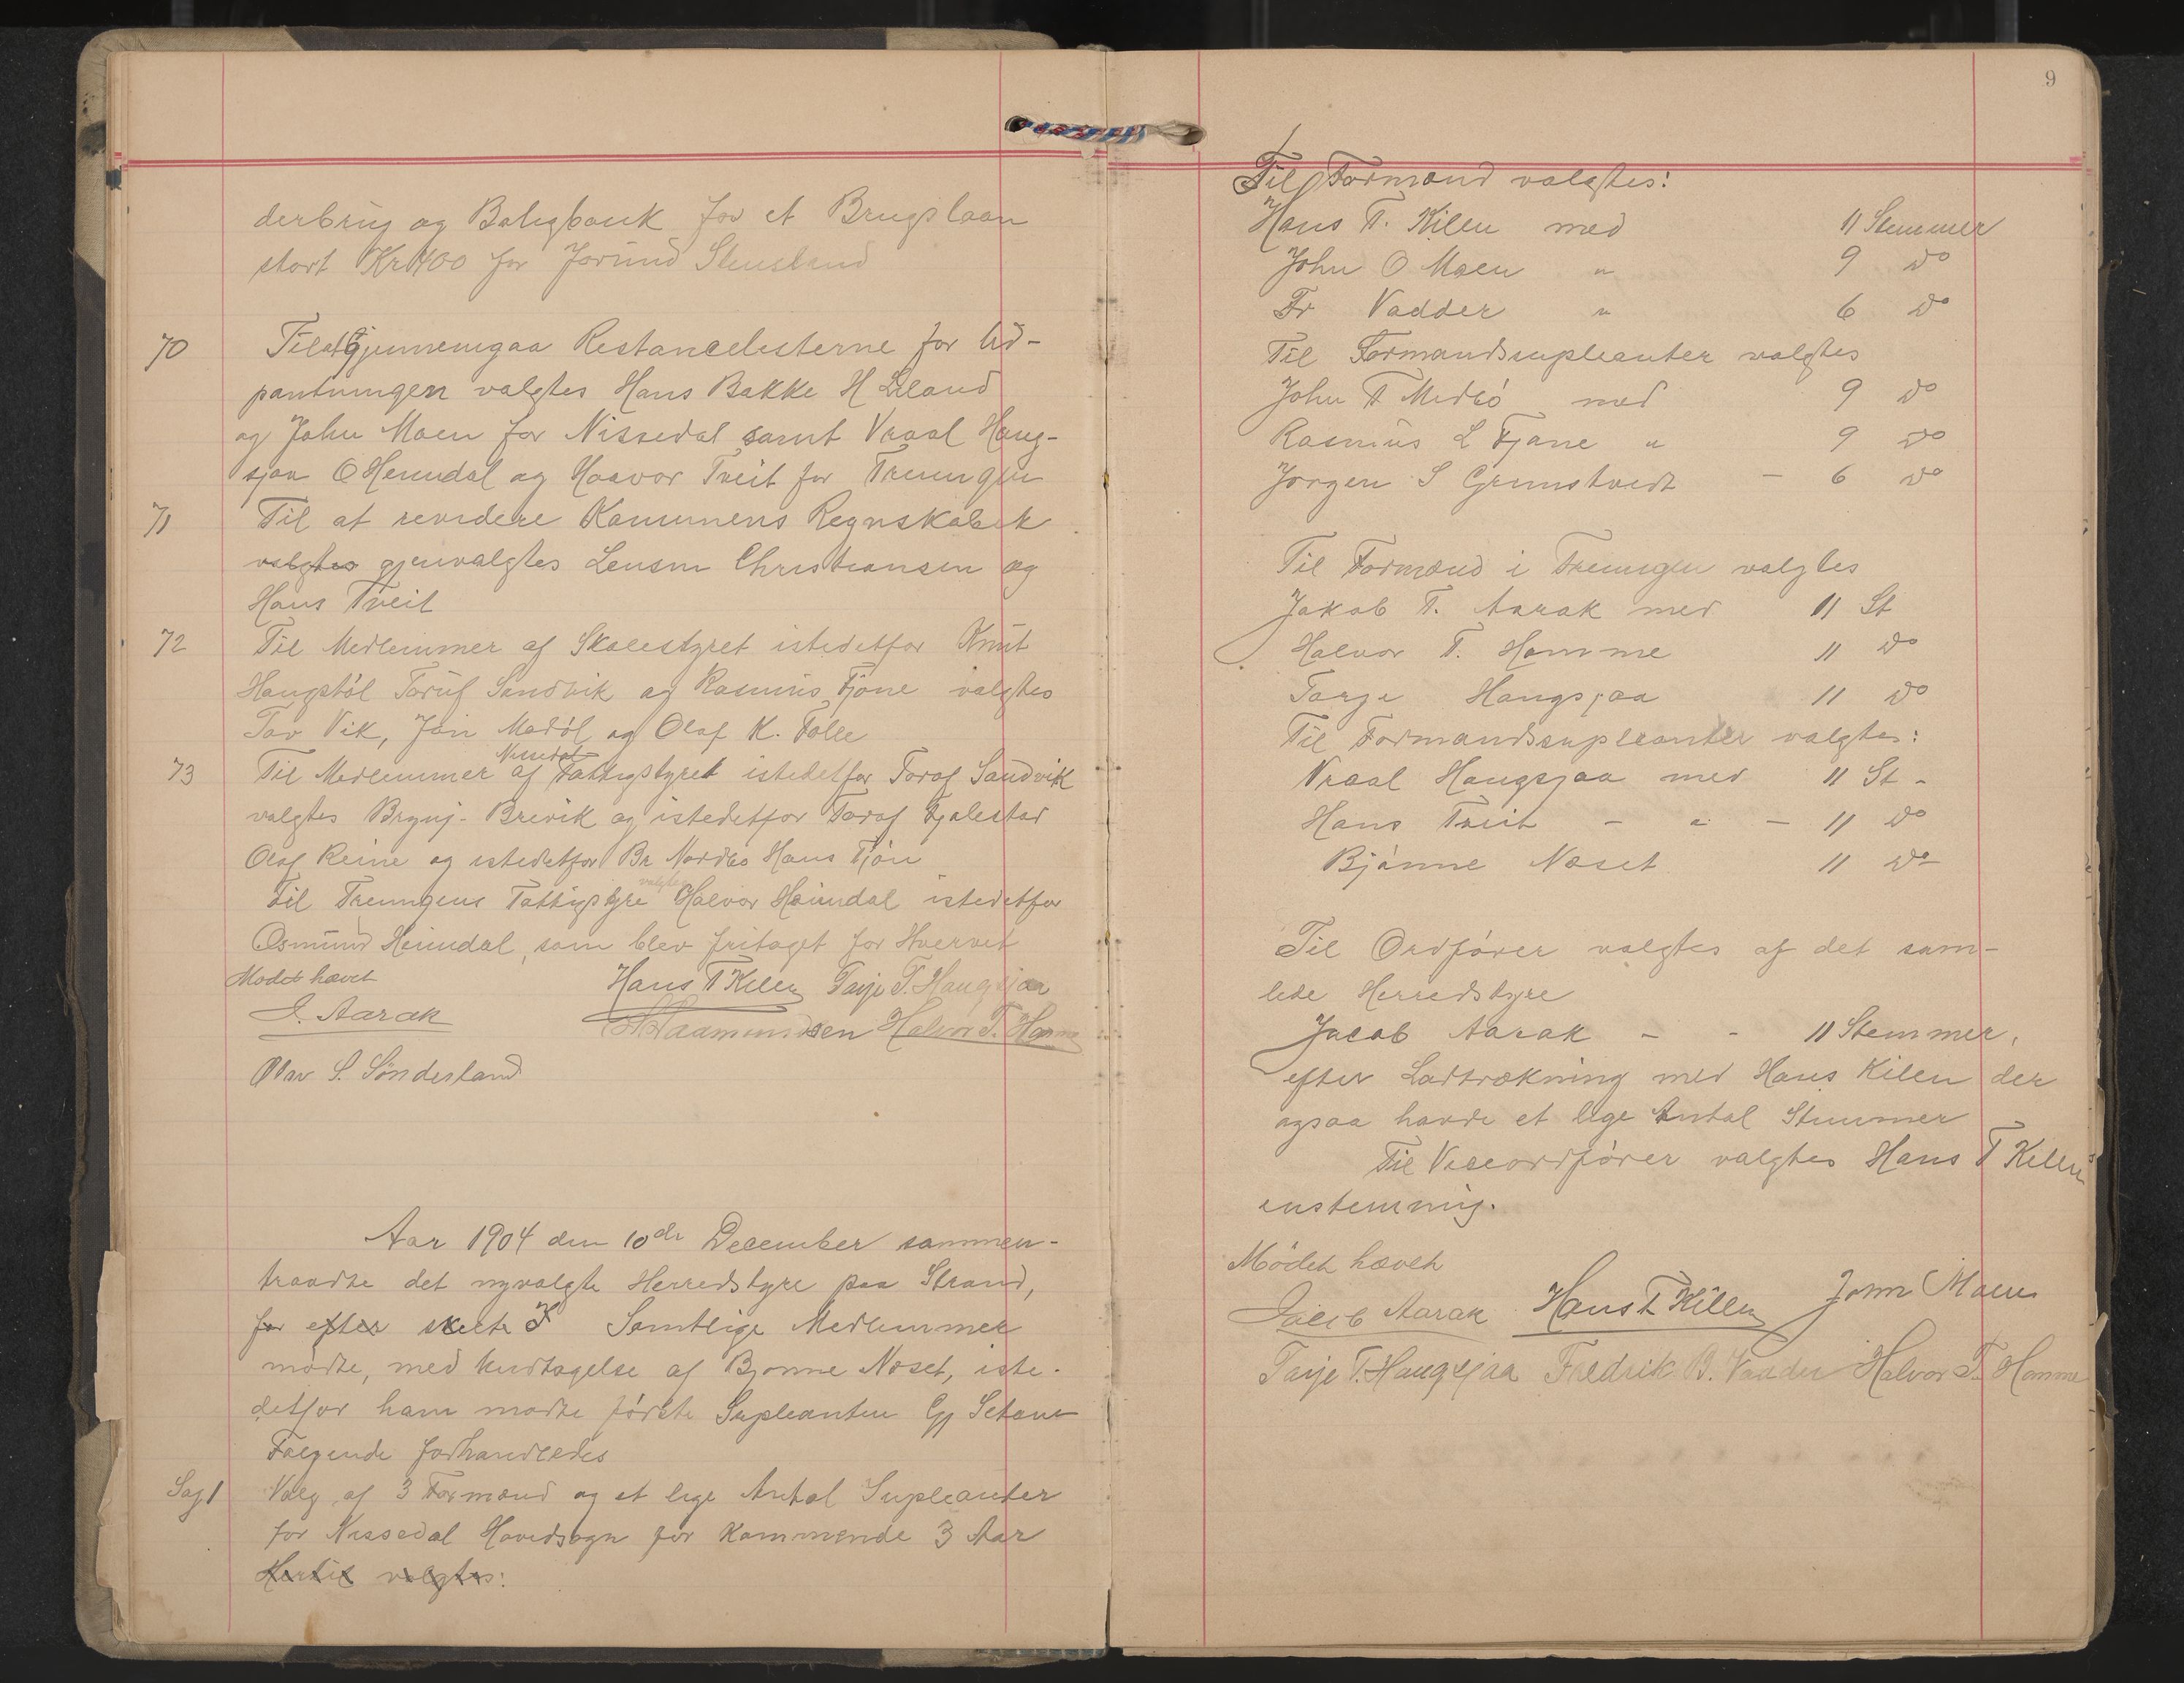 derbrug og Boligbank for et Brugslaan
stort Kr 400 for Jorund Stensland
70 Til at Gjennemgaa Restancelisterne for Ud-
pantningen valgtes Hans Bakke H Leland
og John Moen for Nissedal samt Vraal Haug-
sjaa O Heimdal og Haavor Tveit for Treungen
71 Til at revidere Kommunens Regnskaber
valgtes gjenvalgtes Lensm Christiansen og
Hans Tveit
72 Til Medlemmer af Skolestyret istedetfor Knut
Haugstøl Toruf Sandvik og Rasmus Fjone valgtes
Tov Vik, Jon Medøl og Olaf K. Folle
Nissedal
73 Til Medlemmer af Fattigstyret istedetfor Torof Sandvik
valgtes Brynj. Brevik og istedetfor Torof Fjalestad
Olaf Reine og istedetfor Br Nordbø Hans Tjøn
valgtes
Til Treungens Fattigstyre Halvor Heimdal istedetfor
Osmund Heimdal, som blev fritaget for Hvervet
Mødet hævet
Hans T Kilen Tarje T. Haugsjaa
J. Aarak
Aamundsen Halvor T. Homme
Olav S. Sønderland
Aar 1904 den 10de December sammen-
traadte det nyvalgte Herredstyre paa Strand,
for efter skeete Samtlige Medlemmer
mødte, med Undtagelse af Bjønne Næset, iste-
detfor ham mødte første Supleanten Gj Setane
Følgende forhandledes
Sag 1 Valg af 3 Formænd og et lige Antal Supleanter
for Nissedal Hovedsogn for kommende 3 Aar
Hertil valgtes:
9
Til Formænd valgtes:
Hans T. Kilen med 11 Stemmer
John O Moen " 9 do
Fr Vadder " 6 do
Til Formandssupleanter valgtes
John T Medbø med 9 do
Rasmus L Fjone " 9 do
Jørgen S Grimstvedt - 6 do
Til Formænd i Treungen valgtes
Jakob T. Aarak med 11 St
Halvor T. Homme 11 do
Tarje Haugsjaa 11 do
Til Formandssupleanter valgtes:
Vraal Haugsjaa med 11 St -
Hans Tveit - " - 11 do
Bjønne Næset 11 do
Til Ordfører valgtes af det sam-
lede Herredstyre
Jacob Aarak - - 11 Stemmer,
efter Lodtrækning med Hans Kilen der
ogsaa havde et lige Antal Stemmer
Til Viceordfører valgtes Hans T Kilen
enstemmig.
Mødet hævet
Jacob Aarak Hans T Kilen John Moen
Tarje T. Haugsjaa Fredrik B. Vaader Halvor T. Homme